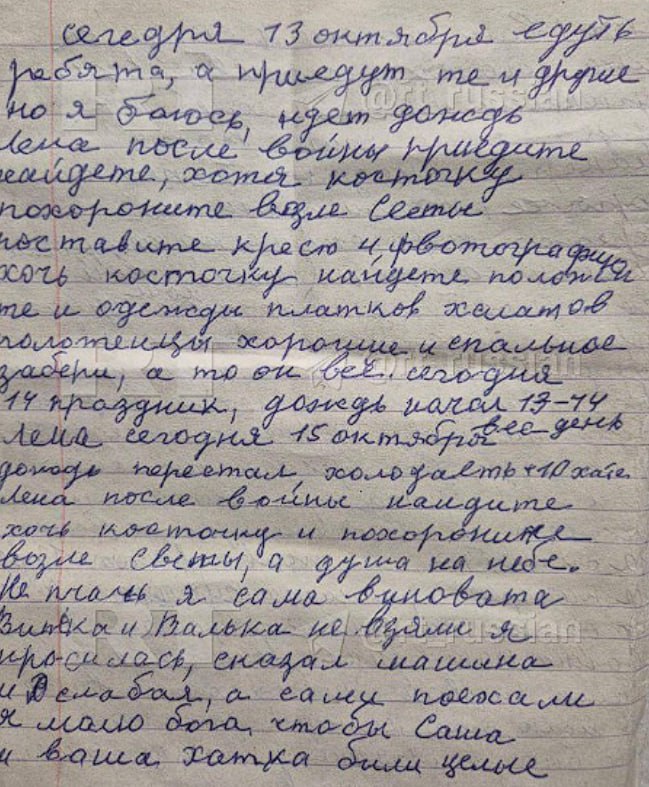 сегодня 13 октября едуть
ребята, а приедут те и другие
но я боюсь, идет дождь
Лена после войны приедите
найдете, хотя косточку
похороните возле Светы
поставите крест и фвотографию
хочь косточку найдете положи
те и одежды платков халатов
полотенцы хорошие и спальное
забери, а то он все. сегодня
14 праздник, дождь начал 13-14
все день
Лена сегодня 15 октября
дождь перестал, холодаеть +10 хате
Лена после войны найдите
хочь косточку и похороните
возле Светы, а душа на небе.
Не плачь я сама виновата
Витька и Валька не взяли я
просилась, сказал машина
и слабая, а сами поехали
я молю бога чтобы Саша
и ваша хатка били целые
@rt_russian
@rt_russian
@rt_russian